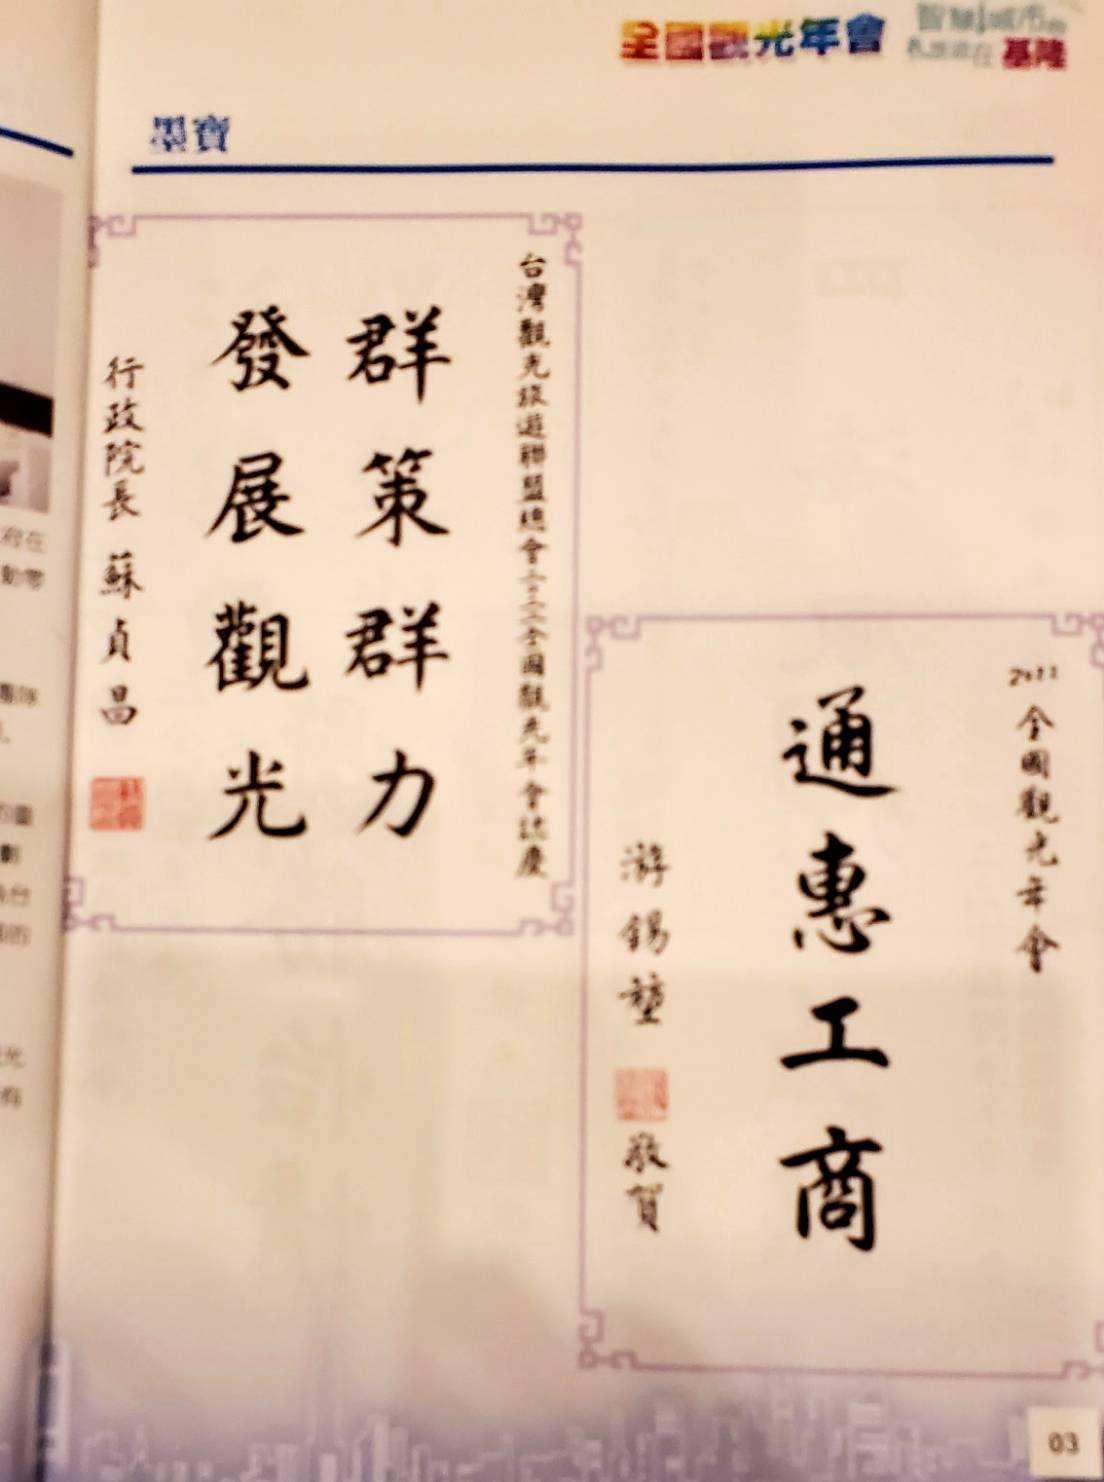 全國觀光年會
智慧城市
在基隆
墨寶
台灣觀光旅遊聯盟總會二〇二二全國觀光年會誌慶
群策群力
發展觀光
行政院長 蘇貞昌
2022全國觀光年會
通惠工商
游錫堃 敬賀
府在
動帶
團隊
的
劃
台
的
光
有
03